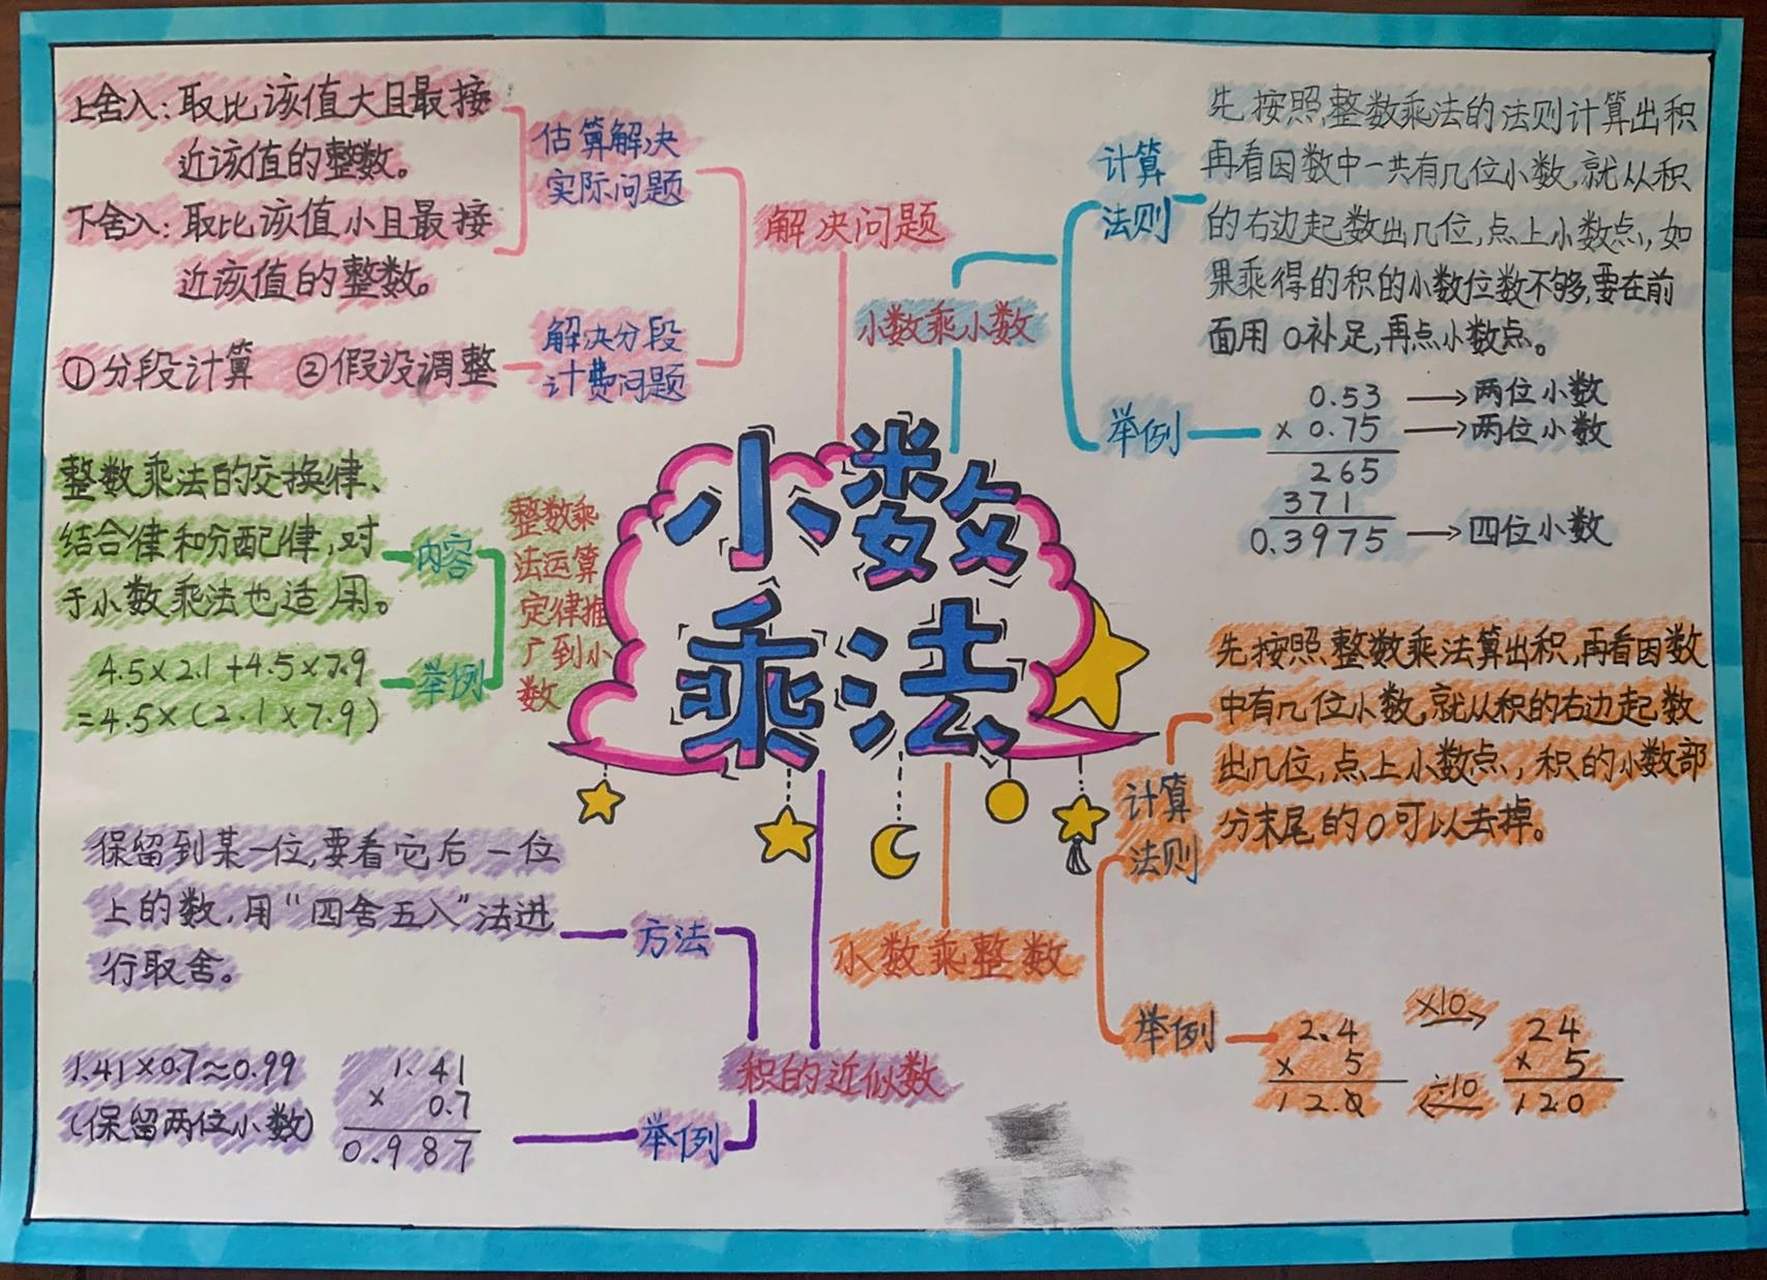 小数
乘法
解决问题
估算解决
实际问题
上舍入：取比该值大且最接
近该值的整数。
下舍入：取比该值小且最接
近该值的整数。
解决分段
计费问题
①分段计算 ②假设调整
小数乘小数
计算
法则
先按照整数乘法的法则计算出积
再看因数中一共有几位小数,就从积
的右边起数出几位,点上小数点,如
果乘得的积的小数位数不够,要在前
面用0补足,再点小数点。
举例
0.53 → 两位小数
× 0.75 → 两位小数
265
371
0.3975 → 四位小数
整数乘
法运算
定律推
广到小
数
内容
整数乘法的交换律、
结合律和分配律,对
于小数乘法也适用。
举例
4.5×2.1+4.5×7.9
=4.5×(2.1×7.9)
小数乘整数
计算
法则
先按照整数乘法算出积,再看因数
中有几位小数,就从积的右边起数
出几位,点上小数点,积的小数部
分末尾的0可以去掉。
举例
2.4 ×10→ 24
× 5 × 5
12.0 ←÷10 120
积的近似数
方法
保留到某一位,要看它后一位
上的数,用“四舍五入”法进
行取舍。
举例
1.41×0.7≈0.99
(保留两位小数)
1.41
× 0.7
0.987